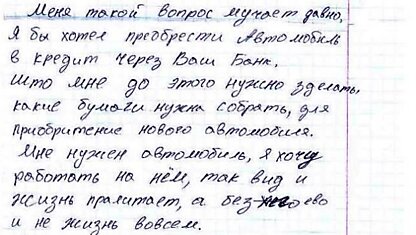 Меня такой вопрос мучает давно.
Я бы хотел преобрести Автомобиль
в кредит через Ваш Банк.
Што мне до этого нужно зделать,
какие бумаги нужна собрать, для
приобритение нового автомобиля.
Мне нужен автомобиль, я хочу
работать на нём, так вид и
жизнь пралитает, а без ево
и не жизнь вовсем.